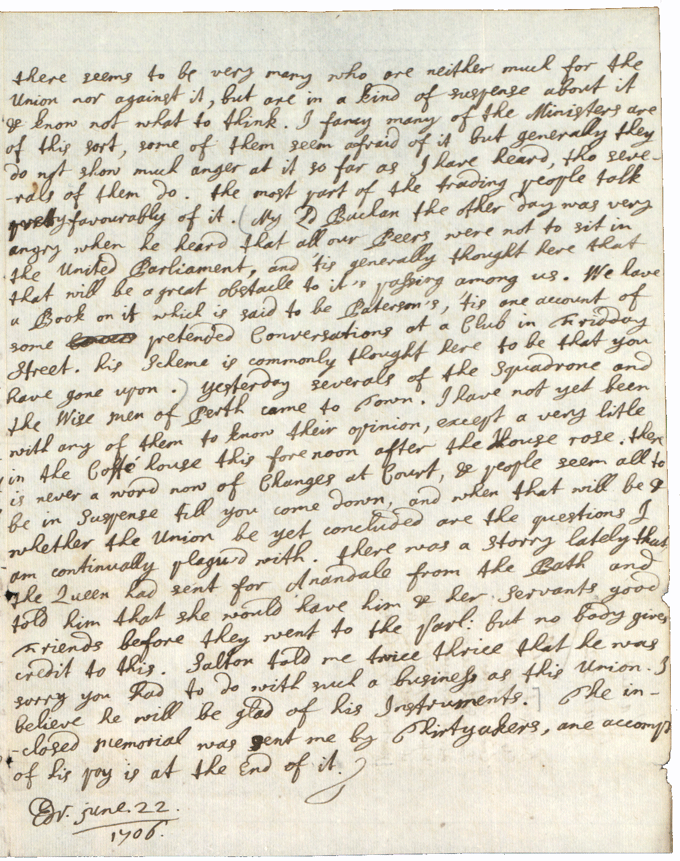 there seems to be very many who are neither much for the
Union nor against it, but are in a kind of suspense about it
& know not what to think. I fancy many of the Ministers are
of this sort, some of them seem afraid of it but generally they
do not show much anger at it so far as I have heard, tho seve-
-rals of them do. the most part of the trading people talk
pretty favourably of it. (My Ld Buchan the other day was very
angry when he heard that all our Peers were not to sit in
the United Parliament, and 'tis generally thought here that
that will be a great obstacle to it's passing among us. We have
a Book on it which is said to be Paterson's, 'tis one account of
some pretended Conversations at a Club in Fridday
Street. his Scheme is commonly thought here to be that you
have gone upon.) Yesterday severals of the Squadrone and
the Wise men of Perth came to Town. I have not yet been
with any of them to know their opinion, except a very little
in the Coffé house this forenoon after the House rose. ther
is never a word now of Changes at Court, & people seem all to
be in Suspense till you come down, and when that will be &
whether the Union be yet concluded are the questions I
am continually plagu'd with. there was a Storry lately that
the Queen had sent for Anandale from the Bath and
told him that she would have him & her Servants good
Friends before they went to the Parl: but no body gives
credit to this. Salton told me twice thrice that he was
sorry you had to do with such a business as this Union. I
believe he will be glad of his Instruments.] The in-
-closed memorial was sent me by Thirtyakers, ane accompt
of his pay is at the End of it.
Edr. june. 22.
1706.